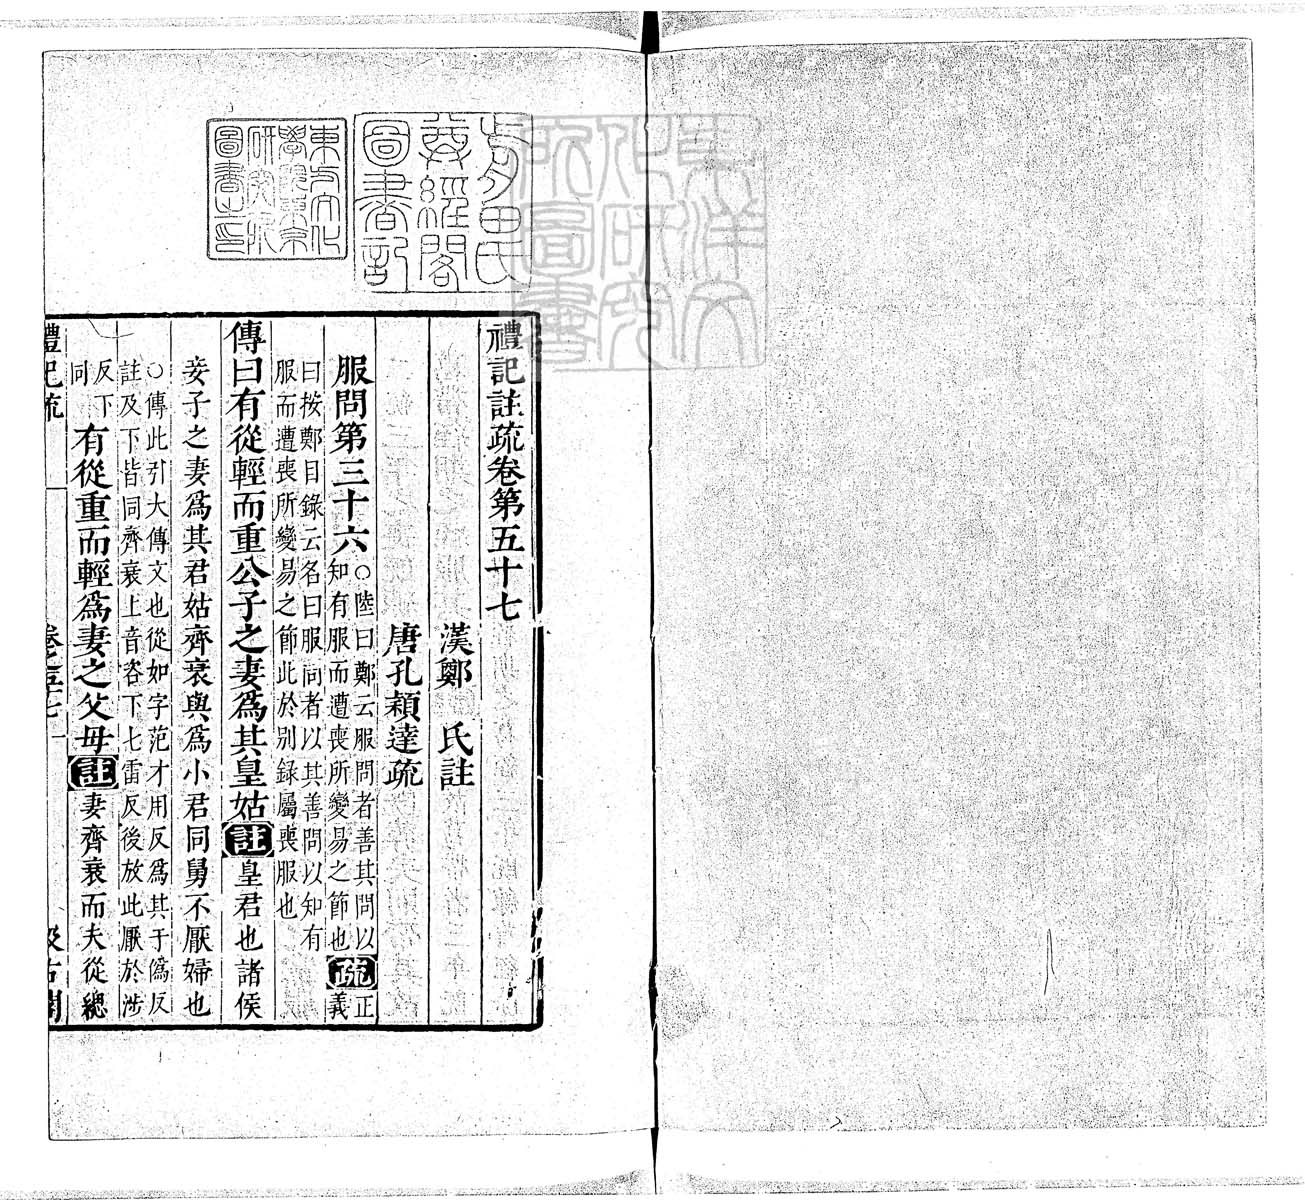 禮記註疏卷第五十七
漢鄭　氏註
唐孔穎達疏
服問第三十六○陸曰鄭云服問者善其問以知有服而遭喪所變易之節也疏正義
曰按鄭目錄云名曰服問者以其善問以知有服而遭喪所變易之節此於別錄屬喪服也
傳曰有從輕而重公子之妻爲其皇姑註皇君也諸侯
妾子之妻爲其君姑齊衰與爲小君同舅不厭婦也
○傳此引大傳文也從如字范才用反爲其于僞反註及下皆同齊衰上音咨下七雷反後放此厭於涉
反下同有從重而輕爲妻之父母註妻齊衰而夫從緦
禮記疏
卷五十七
一
汲古閣
東方文化學院東京研究所圖書之印
尊經閣
圖書記